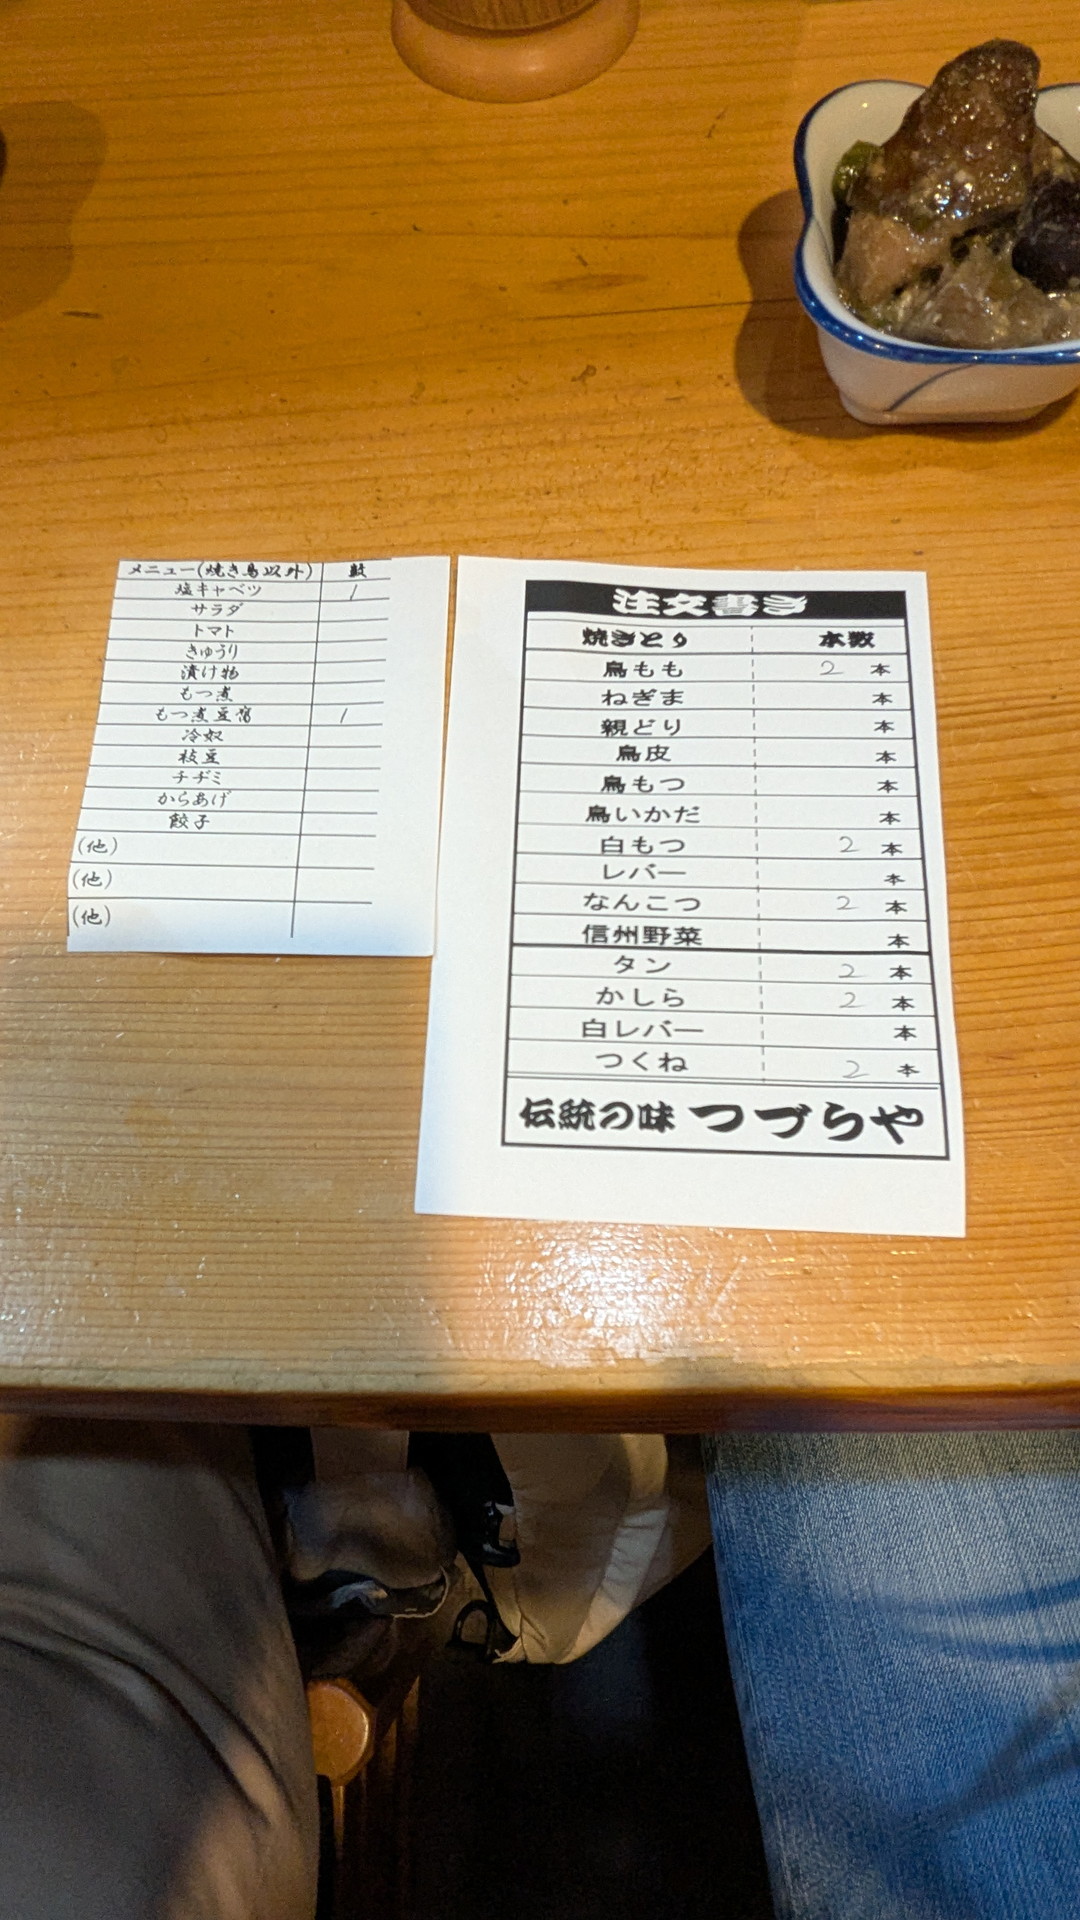 メニュー(焼き鳥以外) 数
塩キャベツ 1
サラダ
トマト
きゅうり
漬け物
もつ煮
もつ煮豆腐 1
冷奴
枝豆
チヂミ
からあげ
餃子
(他)
(他)
(他)
注文書き
焼きとり 本数
鳥もも 2 本
ねぎま 本
親どり 本
鳥皮 本
鳥もつ 本
鳥いかだ 本
白もつ 2 本
レバー 本
なんこつ 2 本
信州野菜 本
タン 2 本
かしら 2 本
白レバー 本
つくね 2 本
伝統の味 つづらや